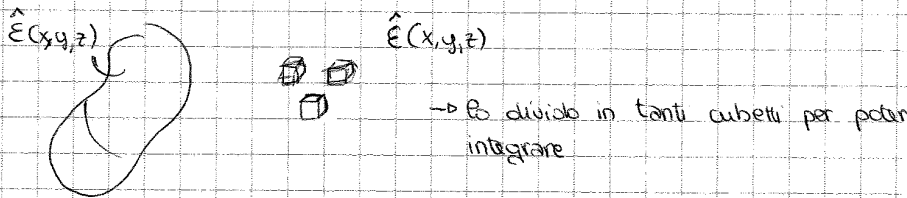 ε̂(x,y,z)
ε̂(x,y,z)
→ lo divido in tanti cubetti per poter
integrare